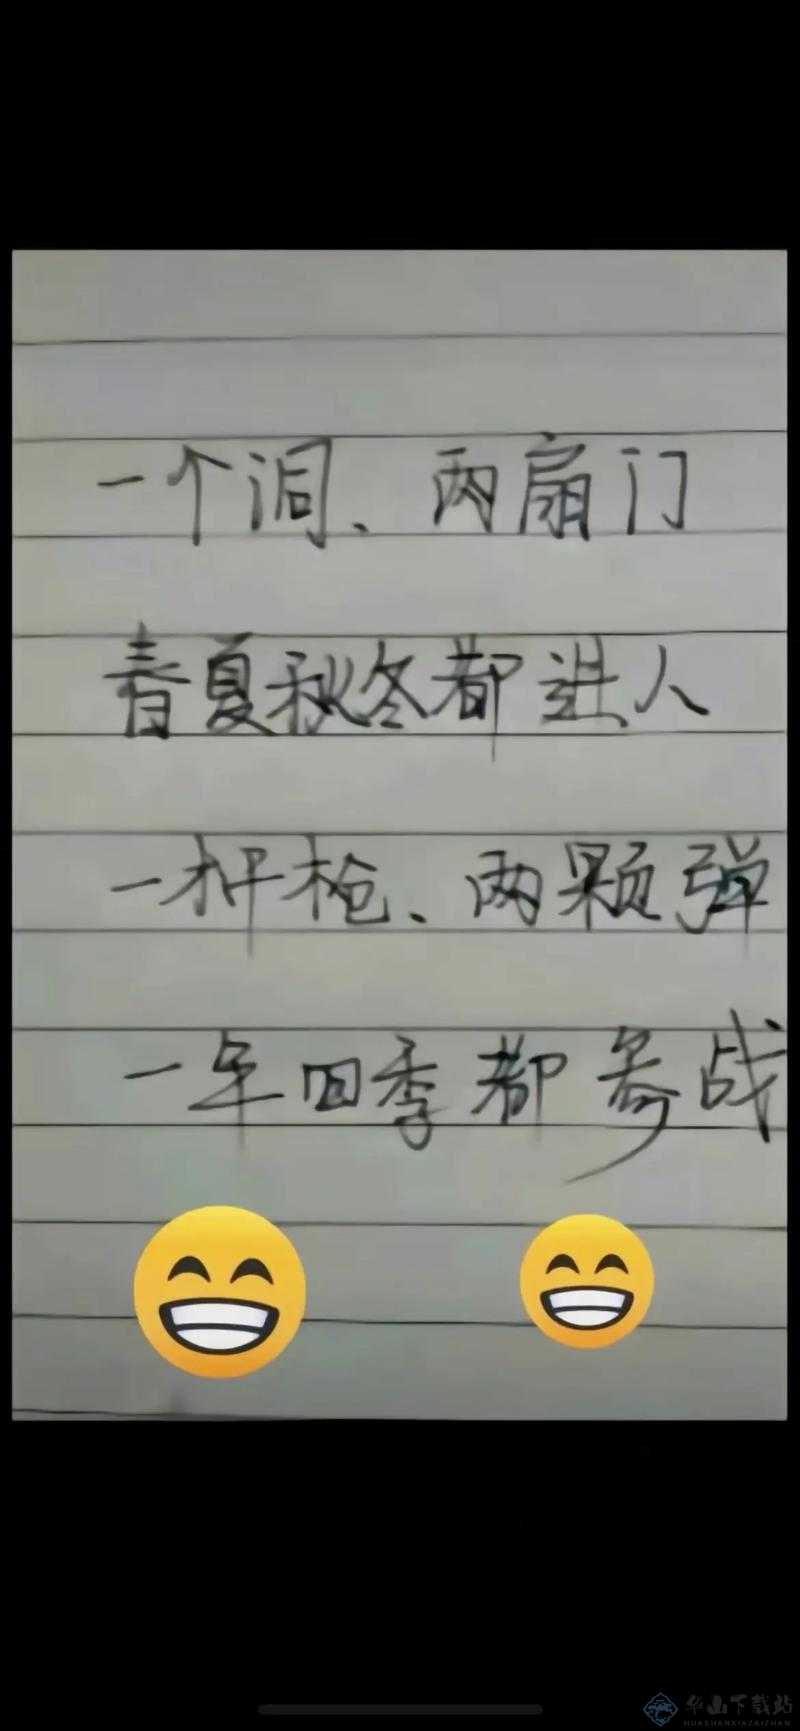 一个洞、两扇门
春夏秋冬都进人
一杆枪、两颗弹
一年四季都参战
华山下载站
HUASHANXIAZAIZHAN